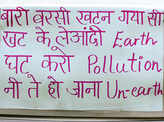 बारी वरसी खटन गया सी
खट के लेआंदी Earth
घट करो Pollution
नी ते हो जाना Un-earth